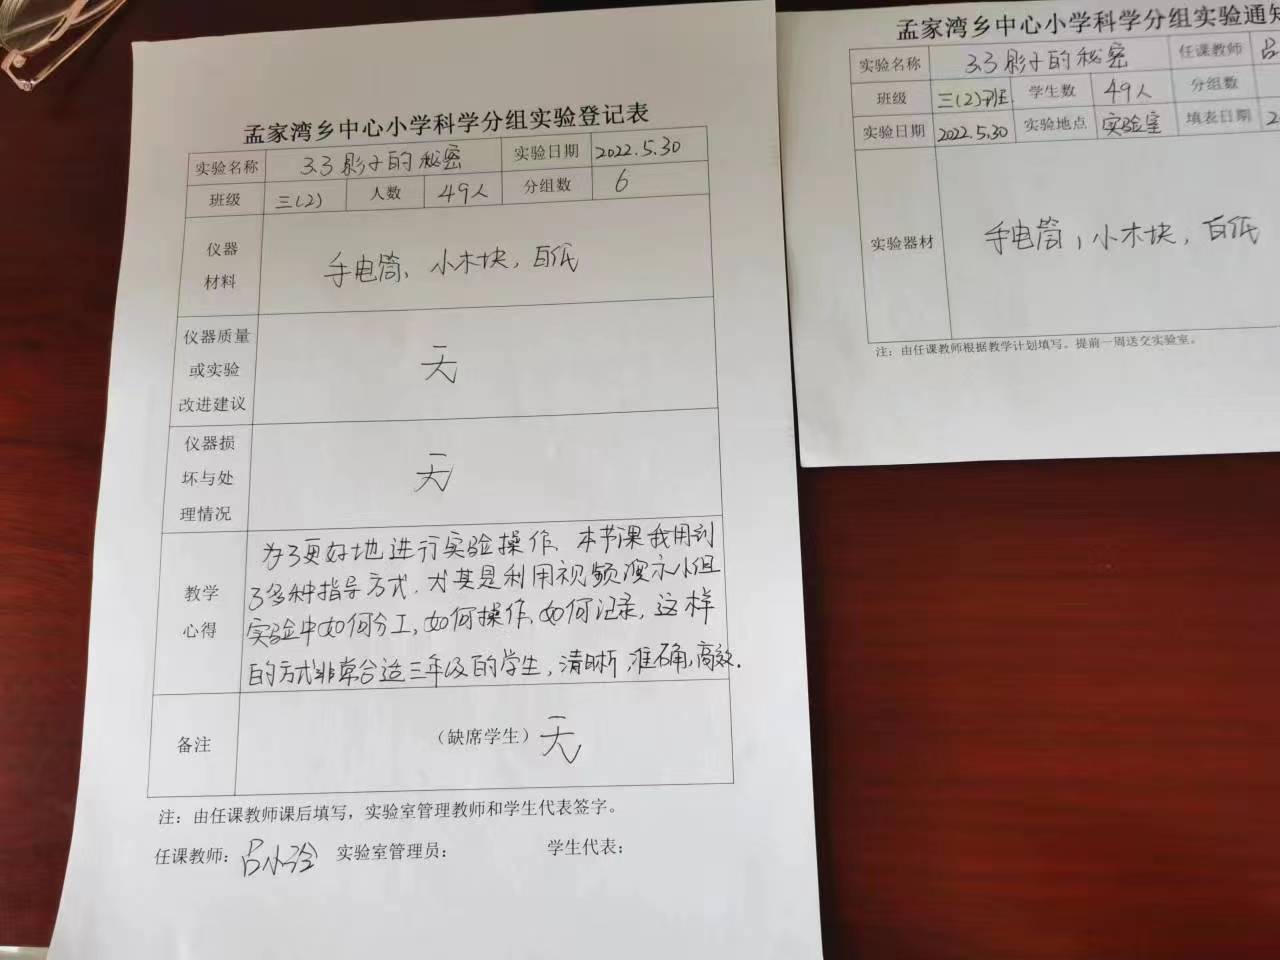 孟家湾乡中心小学科学分组实验登记表
实验名称 3.3影子的秘密 实验日期 2022.5.30
班级 三(2) 人数 49人 分组数 6
仪器
材料
手电筒、小木块，白纸
仪器质量
或实验
改进建议
无
仪器损
坏与处
理情况
无
教学
心得
为了更好地进行实验操作、本节课我用到
了多种指导方式.尤其是利用视频演示小组
实验中如何分工,如何操作,如何记录,这样
的方式非常合适三年级的学生,清晰,准确,高效.
备注 (缺席学生) 无
注：由任课教师课后填写，实验室管理教师和学生代表签字。
任课教师：吕小 实验室管理员： 学生代表：
孟家湾乡中心小学科学分组实验通知
实验名称 3.3影子的秘密 任课教师 吕
班级 三(2)班 学生数 49人 分组数
实验日期 2022.5.30 实验地点 实验室 填表日期 2
实验器材 手电筒,小木块,白纸
注：由任课教师根据教学计划填写。提前一周送交实验室。